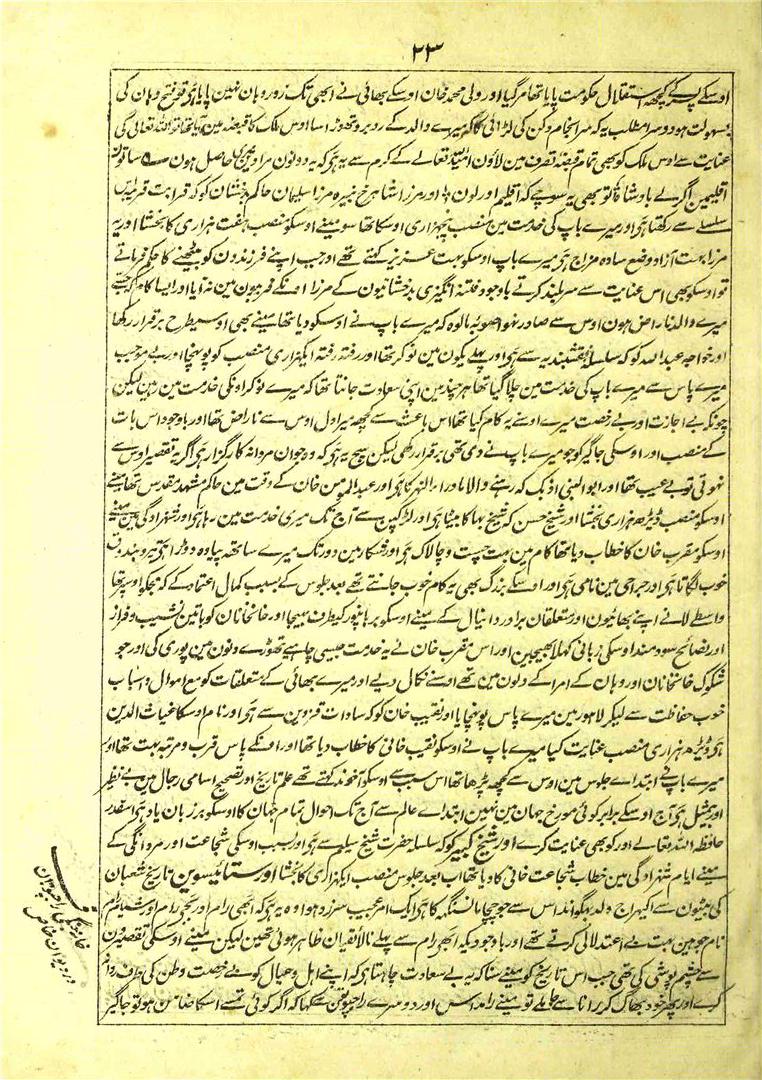 ۲۳
اوسکے پسر کے کچھ استقلال حکومت پایا تھا مرگیا اور ولی محمد خان اوسکے بھائی نے ابھی تک زور وہان نہین پایا ہی تو فتح وہان کی
بسہولت ہو دوسرا مطلب یہ کہ سرانجام دکن کی لڑائی کا کہ میرے والد کے روبرو تھوڑا سا اوس ملک کا قبضہ مین آیا تھا تو اللہ تعالی کی
عنایت سے اوس ملک کو بھی تمام قبضہ تصرف مین لاؤن اللہ تعالے کے کرم سے یہ ہی کہ یہ دونون مرادین حاصل ہون ساتون
اقلیمین اگر لے بادشاہ تو بھی یہ سوچے کہ اقلیم اور لون اور مرزا شاہرخ نبیرہ مرزا سلیمان حاکم بدخشان کو کہ قرابت قریب
سلسلے سے رکھتا ہی اور میرے باپ کی خدمت مین منصب پنجہزاری اوسکا تھا سو مینے اوسکو منصب ہفت ہزاری کا بخشا اور یہ
مرزا بہت آزاد وضع سادہ مزاج ہی میرے باپ اوسکو بہت عزیز رکھتے تھے اور جب اپنے فرزندون کو بیٹھنے کا حکم فرماتے
تو اوسکو بھی اس عنایت سے سربلند کرتے باوجود فتنہ انگیزی بدخشانیون کے مرزا اونکے فریبون مین نہ آیا اور ایسا کام کہ جسے
میرے والد ناراض ہون اوس سے صادر نہوا صوبہ مالوہ کہ میرے باپ نے اوسکو دیا تھا مینے بھی اوسیطرح برقرار رکھا
اور خواجہ عبداللہ کو کہ سلسلہ نقشبندیہ سے ہی اور پہلے یکون مین نوکر تھا اور رفتہ رفتہ ایکہزاری منصب کو پونہچا اور بے موجب
میرے پاس سے میرے باپ کی خدمت مین چلا گیا تھا ہرچند مین اپنی سعادت جانتا تھا کہ میرے نوکر اونکی خدمت مین رہین لیکن
چونکہ بے اجازت اور بے رخصت میرے اوسنے یہ کام کیا تھا اس باعث سے کچھ میرا دل اوس سے ناراض تھا اور باوجود اس بات
کے منصب اور اوسکی جاگیر کو جو میرے باپ نے دی تھی برقرار رکھی لیکن سچ یہ ہی کہ وہ جوان مردانہ کارگزار ہی اگر یہ تقصیر اوس سے
نہوتی تو بے عیب تھا اور ابوالنبی اذبک کہ رہنے والا ماوراء النہر کا ہی اور عبدالمومن خان کے وقت مین حاکم مشہد مقدس تھا مینے
اوسکو منصب ڈیڑھ ہزاری بخشا اور شیخ حسن کہ شیخ بہا کا بیٹا ہی اور لڑکپن سے آج تک میری خدمت مین رہا ہی اور شہزادگی مین مینے
اوسکو مقرب خان کا خطاب دیا تھا کام مین بہت چست و چالاک ہی اور شکار مین دور تک میرے ساتھ پیادہ دوڑا ہی تیر و بندوق
خوب لگاتا ہی اور جراحی مین نامی ہی اور اوسکے بزرگ بھی یہ کام خوب جانتے تھے بعد جلوس کے بسبب کمال اعتماد کے کہ مجکو اوسپر تھا
واسطے لانے اپنے بھائیون اور متعلقان برادر دانیال کے مینے اوسکو برہانپور کیطرف بھیجا اور خانخانان کو باتین نشیب و فراز
اور نصائح سودمند اوسکی زبانی کہلا بھیجین اور اس مقرب خان نے یہ خدمت جیسی چاہیے تھوڑے دنون مین پوری کی اور جو
شکوک خانخانان اور وہان کے امرا کے دلون مین تھے اوسنے نکال دیے اور میرے بھائی کے متعلقات کو مع اموال و اسباب
خوب حفاظت سے لیکر لاہور مین میرے پاس پونہچایا اور نقیب خان کو کہ سادات قزوین سے ہی اور نام اوسکا غیاث الدین
ہی ڈیڑھ ہزاری منصب عنایت کیا میرے باپ نے اوسکو نقیب خانی کا خطاب دیا تھا اور اونکے پاس قرب و مرتبہ بہت تھا اور
میرے باپ نے ابتداے جلوس مین اوس سے کچھ پڑھا تھا اس سبب سے اوسکو آخوند کہتے تھے علم تاریخ اور تصحیح اسامی رجال مین بے نظیر
اور بیمثل ہی آج اوسکے برابر کوئی مورخ جہان مین نہین ابتداے عالم سے آج تک احوال تمام جہان کا اوسکو بر زبان یاد ہی اسقدر
حافظہ اللہ تعالے اور کو بھی عنایت کرے اور شیخ کبیر کو کہ سلسلہ حضرت شیخ سلیم سے ہی اور بسبب اوسکی شجاعت اور مردانگی کے
مینے ایام شہزادگی مین خطاب شجاعت خانی کا دیا تھا اب بعد جلوس منصب ایکہزاری کا بخشا اور ستائیسوین تاریخ شعبان
کی بیٹون سے اکھیراج ولد بھگوانداس سے جو چچا مانسنگہ کا ہی ایک امر عجیب سرزد ہوا وہ یہ ہی کہ ابھی رام اور بجی رام اور شیام رام
نام جو مین بہت بے اعتدالی کرتے تھے اور باوجودیکہ ابھی رام سے پہلے نالائقیان ظاہر ہوئی تھین لیکن مینے اوسکی تقصیرون
سے چشم پوشی کی تھی جب اس تاریخ کو مینے سنا کہ یہ بے سعادت چاہتا ہی کہ اپنے اہل و عیال کو بے رخصت وطن کی طرف روانہ
کرے اور پھر خود بھاگ کر رانا سے جا ملے تو مینے رامداس اور دوسرے راجپوتون سے کہا کہ اگر کوئی تمسے اسکا ضامن ہو تو جاگیر